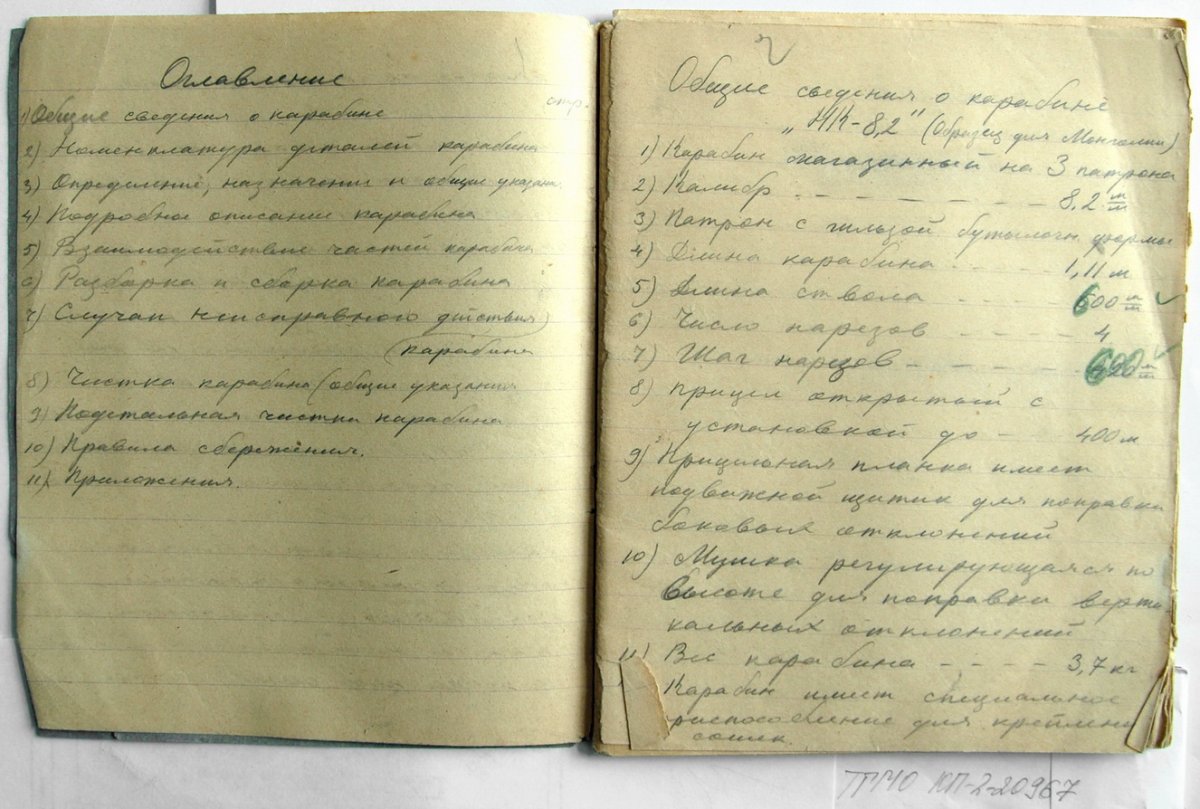 Оглавление
стр.
1) Общие сведения о карабине
2) Номенклатура деталей карабина
3) Определение, назначение и общие указан.
4) Подробное описание карабина
5) Взаимодействие частей карабина
6) Разборка и сборка карабина
7) Случаи неисправного действия)
(карабина
8) Чистка карабина (общие указания
9) Подетальная чистка карабина
10) Правила сбережения.
11) Приложения.
Общие сведения о карабине
„НК-8,2" (Образец для Монголии)
1) Карабин магазинный на 3 патрона
2) Калибр - - - - - - - - 8,2 м/м
3) Патрон с гильзой бутылочн формы
4) Длина карабина - - - - 1,11 м
5) Длина ствола - - - - 600 м/м
6) Число нарезов - - - - 4
7) Шаг нарезов - - - - - м/м
8) Прицел открытый с
установкой до - 400 м
9) Прицельная планка имеет
подвижной щитик для поправки
боковых отклонений
10) Мушка регулирующаяся по
высоте для поправки верти
кальных отклонений
11) Вес карабина - - - - 3,7 кг
Карабин имеет специальное
риспособление для креплени
сошек.
ТГМО КП-2-20967